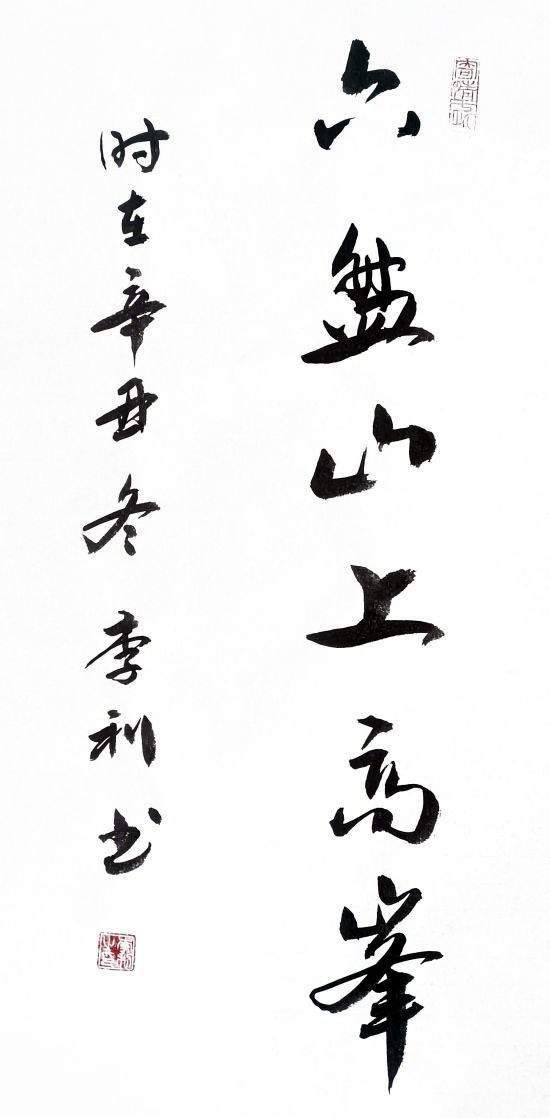 六盘山上高峯
时在辛丑冬李利书